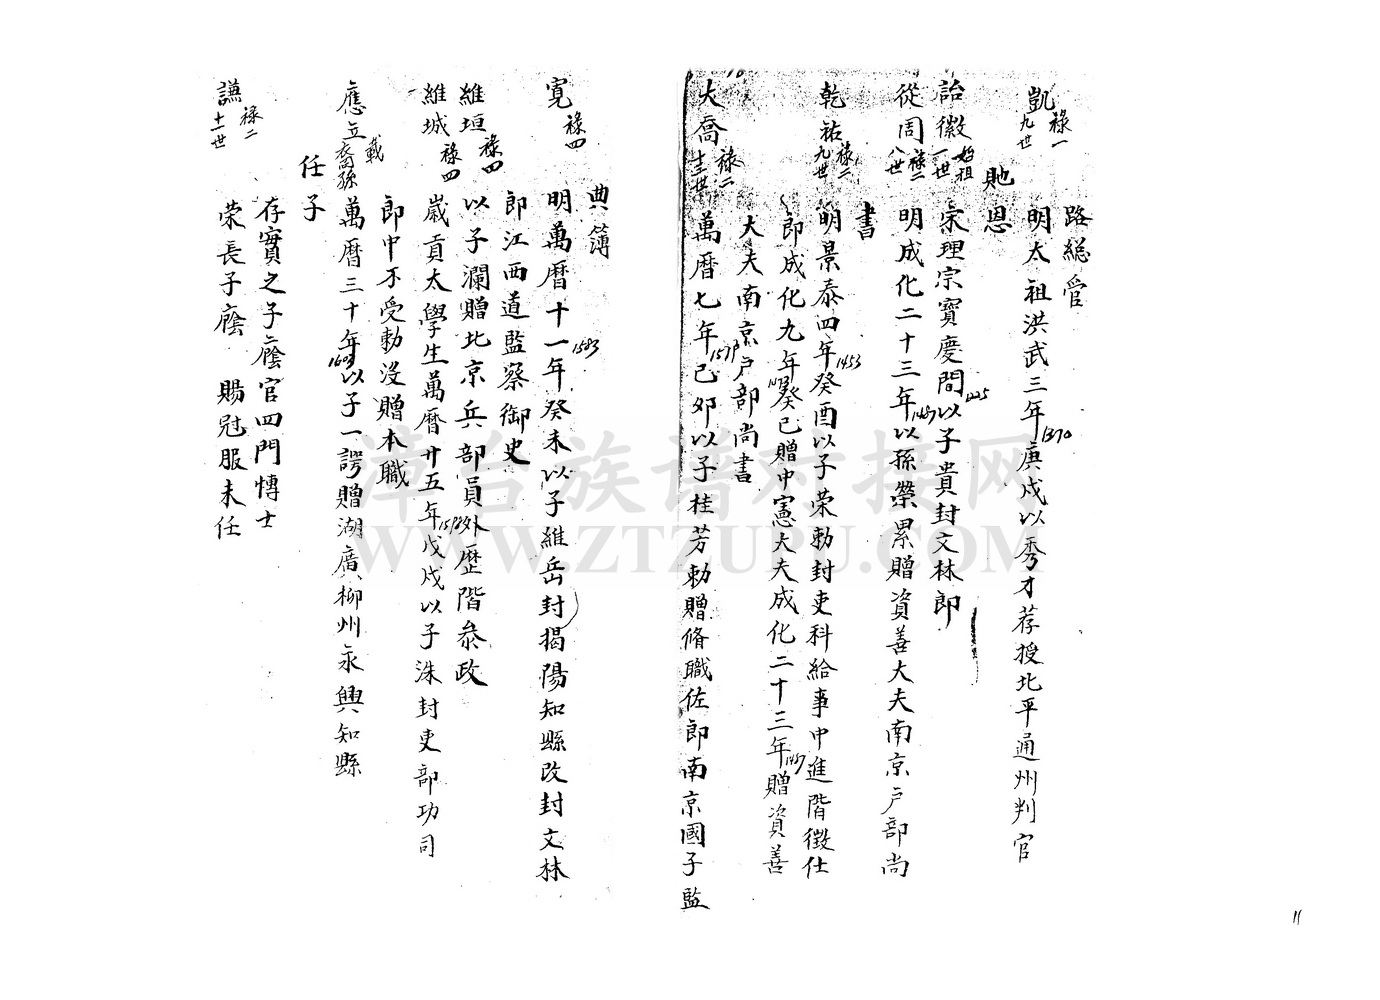 路總管
凱 祿一 九世 明太祖洪武三年1370庚戌以秀才荐授北平通州判官
貤恩
詒徽 始祖 一世 宗理宗寶慶間1225以子貴封文林郎
從周 祿二 八世 明成化二十三年1487以孫榮累贈資善大夫南京戶部尚
書
乾祐 祿二 九世 明景泰四年1453癸酉以子荣勅封吏科給事中進階徵仕
郎成化九年癸已贈中憲大夫成化二十三年1487贈資善
大夫南京戶部尚書
大喬 祿二 萬曆七年1579己夘以子桂芳勅贈脩職佐郎南京國子監
典簿
寬 祿四 明萬曆十一年1583癸未以子維岳封揭陽知縣改封文林
郎江西道監察御史
維垣 祿四 以子瀾贈北京兵部員外歷階叅政
維城 祿四 嵗貢太學生萬曆廿五年戊戌以子洙封吏部功司
郎中不受勅沒贈本職
應立 載裔孫 萬曆三十年以子一諤贈湖廣柳州永興知縣
任子
存實之子廕官四門博士
謙 祿二 十一世 荣長子廕 賜冠服未任
漳台族谱对接网
WWW.ZTZUPU.COM
11